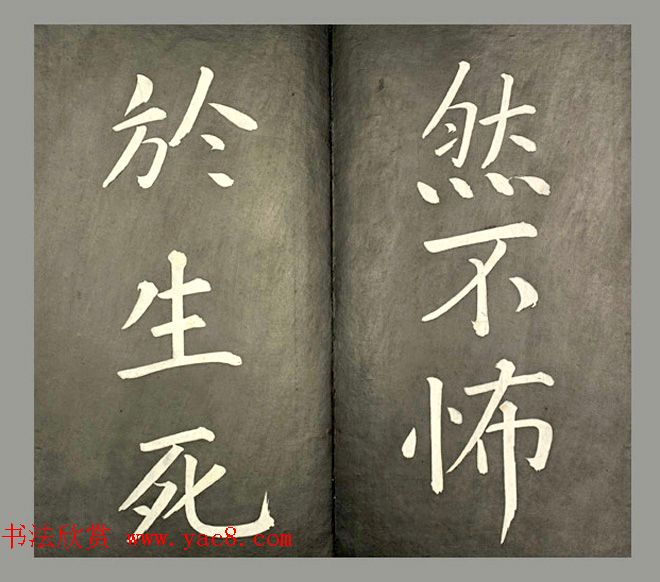 然不怖
於生死
书法欣赏 www.yac8.com